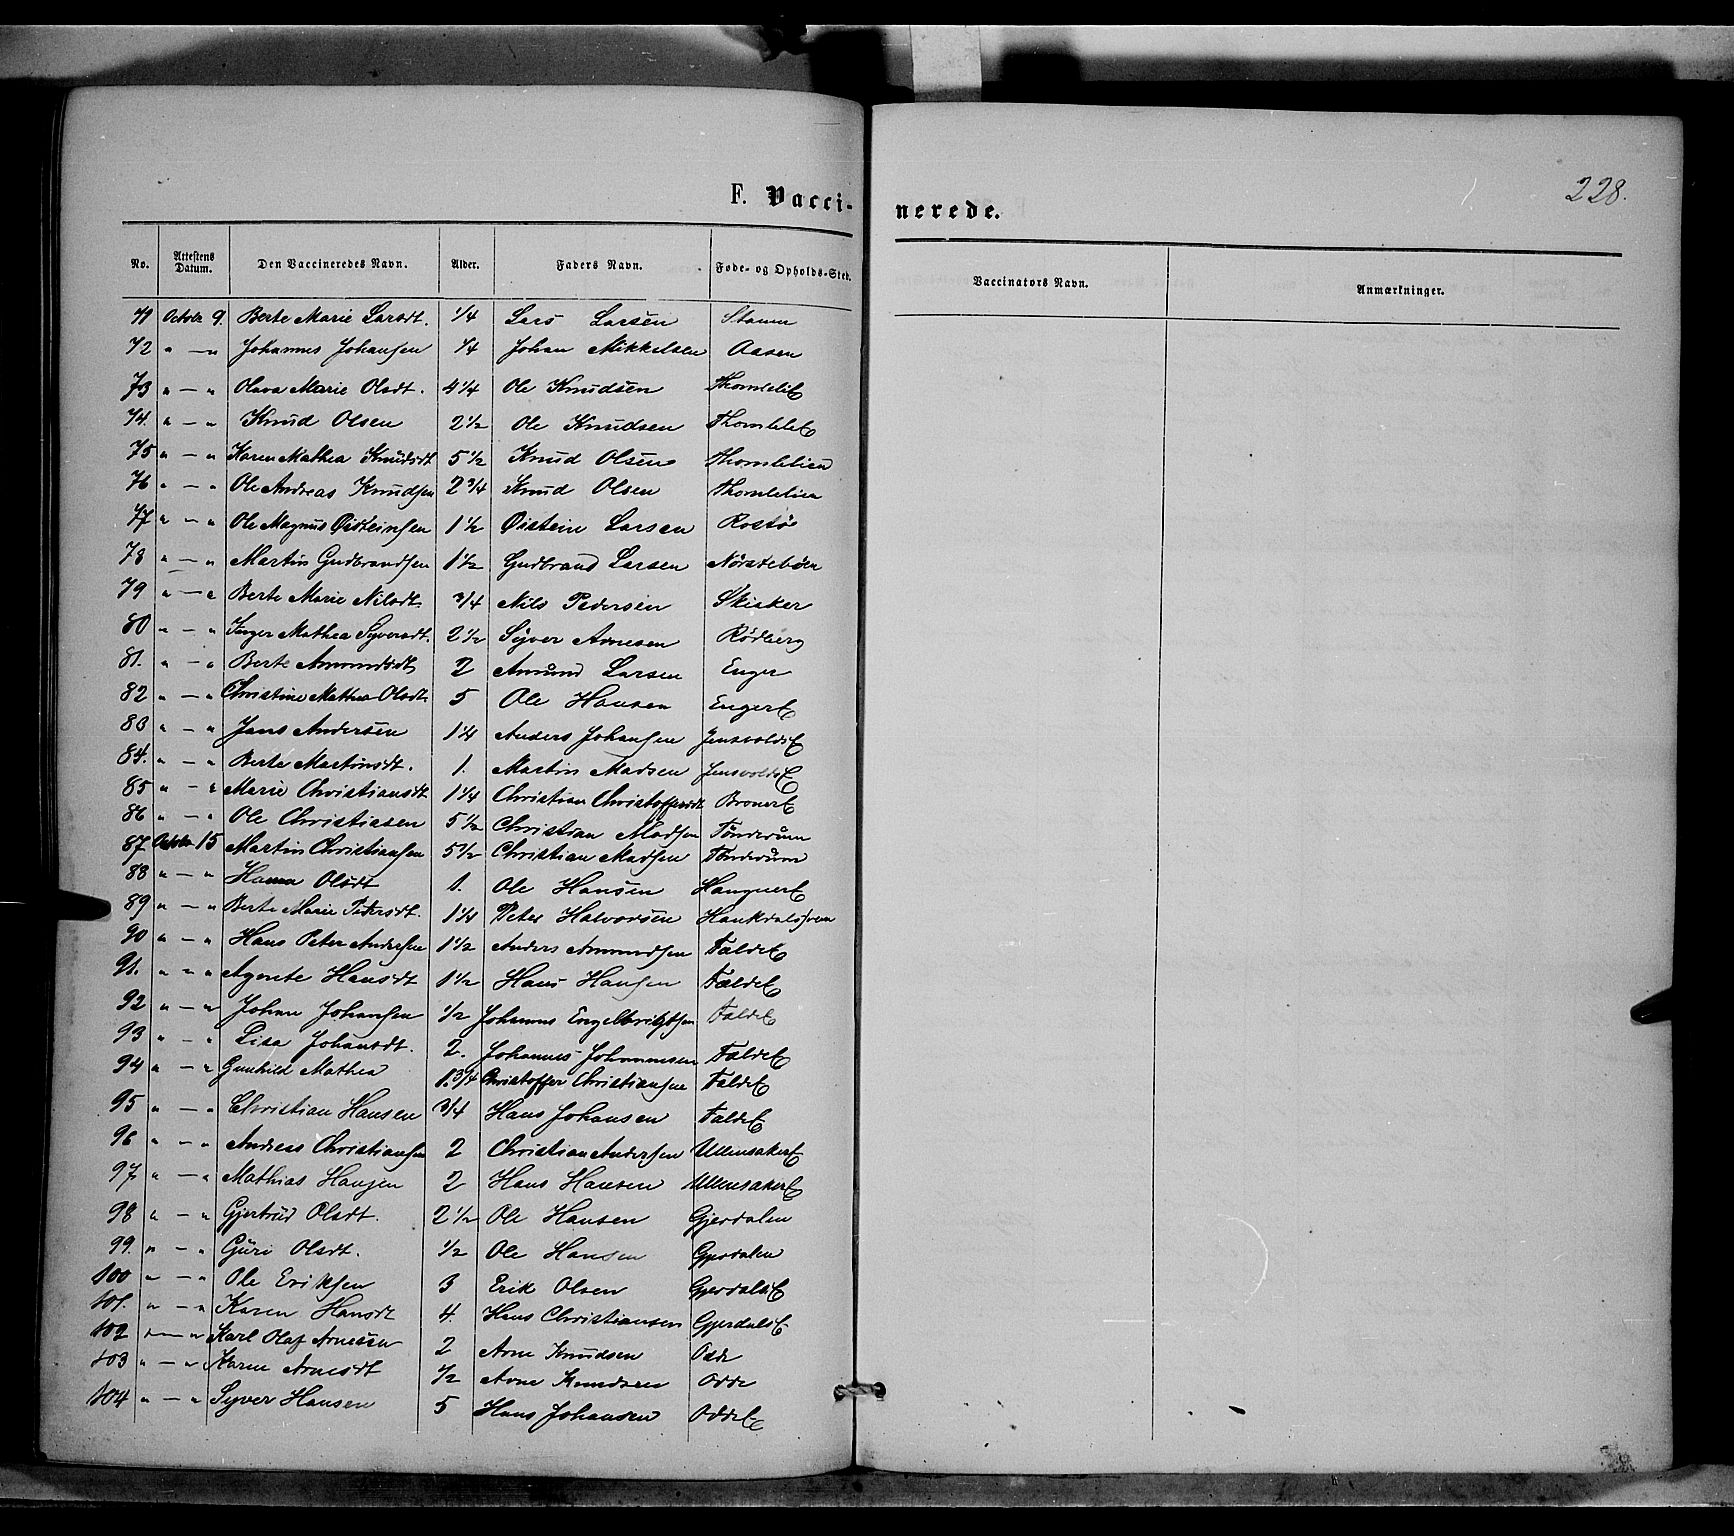 228.
F. Vacci-nerede.
No. Attestens Datum. Den Vaccineredes Navn. Alder. Faders Navn. Føde- og Opholds-Sted. Vaccinators Navn. Anmærkninger.
71 Octobr 9. Berte Marie Larsdt. 1/4 Lars Larsen
72 " — " Johannes Johansen 1/4 Johan Mikkelsen Aasen
73 " — " Olava Marie Olsdt. 4 1/4 Ole Knudsen
74. " — " Knud Olsen 2 1/2 Ole Knudsen
75 " — " Karen Mathea Knudsdt 5 1/2 Knud Olsen Thomlelien
76 " — " Ole Andreas Knudsen 2 3/4 Knud Olsen Thomlelien
77 " — " Ole Magnus Østeinsen 1 1/2 Øistein Larsen Rostø
78 " — " Martin Gudbrandsen 1 1/2 Gudbrand Larsen Nørstebøen
79 " — " Berte Marie Nilsdt. 3/4 Nils Pedersen Skisker
80 " — " Inger Mathea Syversdt. 2 1/2 Syver Arnesen Rødberg
81. " — " Berte Amundsdt 2 Amund Larsen Enger
82 " — " Christine Mathea Olsdt. 5 Ole Hansen EngerE
83 " — " Jans Andersen 1 1/4 Anders Johansen JensvoldsE
84. " — " Berte Martinsdt. 1. Martin Madsen JensvoldsE
85 " — " Marie Christiansdt 1 1/4 Christian Christoffersdt BronerE
86 " — " Ole Christiasen 5 1/2 Christian Madsen Tønderum
87 Octobr 15 Martin Christiansen 5 1/2 Christian Madsen Tønderum
88 " — " Hanna Olsdt 1. Ole Hansen HangnerE
89 " — " Berte Marie Pedersdt. 1 1/4 Peter Halvorsen
90 " — " Hans Peter Andersen 1 1/2 Anders Amundsen FaldeE
91. " — " Agnete Hansdt 1 1/2 Hans Hansen FaldeE
92 " — " Johan Johansen 1/2 Johannes Engelbrigtsen FaldeE
93 " — " Lisa Johansdt. 2. Johannes Johannesen FaldeE
94 " — " Gunhild Mathea 1 3/4 Christoffer Christiansen FaldeE
95 " — " Christian Hansen 3/4 Hans Johansen FaldeE
96 " — " Andreas Christiansen 2 Christian Andersen UllensakerE
97 " — " Mathias Hansen 2 Hans Hansen UllensakerE
98 " — " Gjertrud Olsdt. 2 1/2 Ole Hansen Gjerdalen
99. " — " Guri Olsdt. 1/2 Ole Hansen Gjerdalen
100 " — " Ole Eriksen 3 Erik Olsen GjerdalsE
101. " — " Karen Hansdt 4. Hans Christiansen GjerdalsE
102 " — " Karl Olaf Arnesen 2 Arne Knudsen Odde
103 " — " Karen Arnesdt 1/2 Arne Knudsen Odde
104 " — " Syver Hansen 5 Hans Johansen OddeE